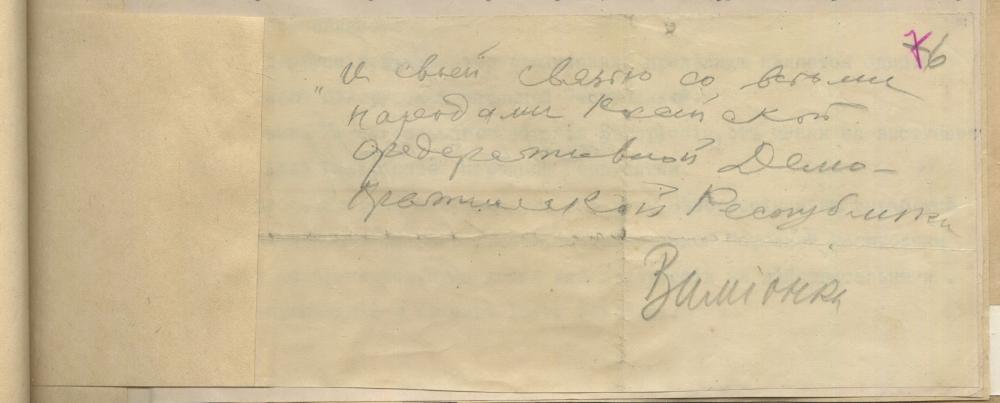 76
и своей связью со всеми
" народами Росейской
Федеративной Демо-
кратической Республики